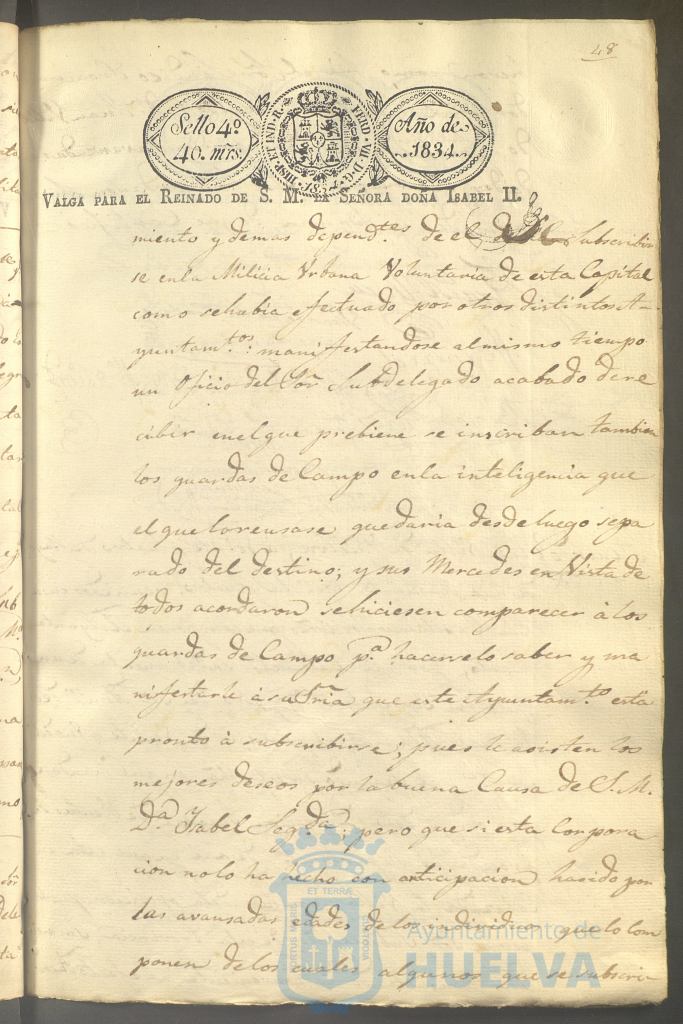 48
Sello 4º
40. mrs.
HISP. ET IND. R. FERD. VII. D. G.
1834
Año de
1834.
VALGA PARA EL REINADO DE S. M. LA SEÑORA DOÑA ISABEL II.
miento y demas depend.tes de el subscribir
se enla Milicia Vrbana Voluntaria de esta Capital
como sehabia efectuado por otros distintos A-
yuntam.tos: manifestandose almismo tiempo
un Oficio del Sor Subdelegado acabado dere
cibir enelque prebiene se inscriban tambien
los guardas de Campo enla inteligencia que
elque loreusase quedaria desde luego sepa
rado del destino; y sus Mercedes en Vista de
todos acordaron sehiciesen comparecer à los
guardas de Campo p.a hacerselo saber y ma
nifestarle à su Sria que este Ayuntam.to está
pronto à subscribirse; pues le asisten los
mejores deseos por la buena Causa de S. M.
D.a Isabel Seg.da; pero que si esta Corpora
cion nolo ha hecho con anticipacion hasido por
las avansadas edades de los individuos quelo com
ponen delos cuales algunos que se subscri-
PORTUS MARIS
ET TERRA
CUSTODIA
Ayuntamiento de
HUELVA